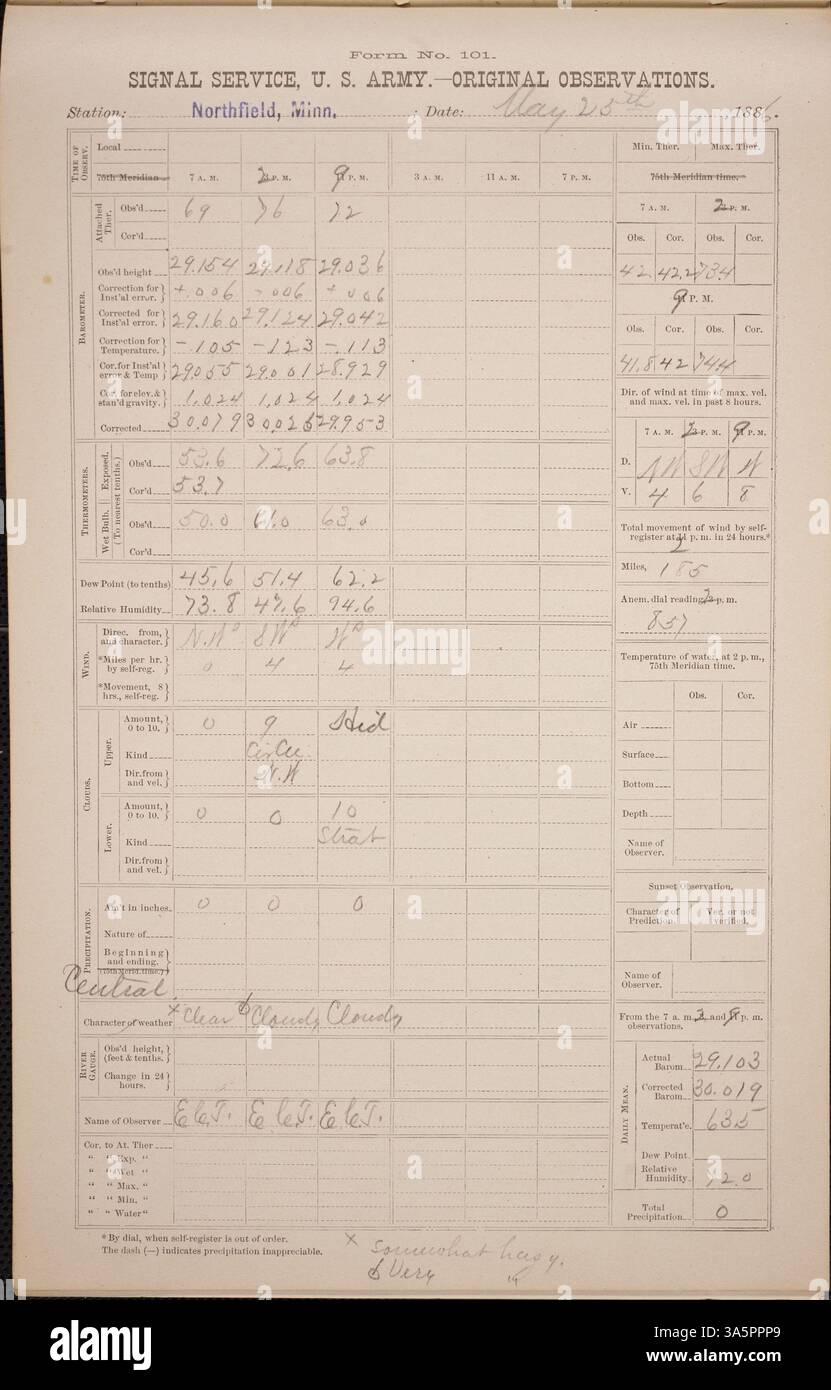 Form No. 101.
SIGNAL SERVICE, U. S. ARMY.—ORIGINAL OBSERVATIONS.
Station: Northfield, Minn. ; Date: May 25th , 1886.
TIME OF OBSERV.
Local
75th Meridian 7 A. M. 2 P. M. 9 P. M. 3 A. M. 11 A. M. 7 P. M.
BAROMETER.
Attached Ther.
Obs'd 69 76 72
Cor'd
Obs'd height 29.154 29.118 29.036
Correction for Inst'al error. +.006 .006 +.006
Corrected for Inst'al error. 29.160 29.124 29.042
Correction for Temperature. -.105 -.123 -.113
Cor. for Inst'al error & Temp 29.055 29.001 28.929
Cor. for elev. & stan'd gravity. 1,024 1,024 1,024
Corrected 30.079 30.025 29.953
THERMOMETERS.
Exposed. Wet Bulb.
(To nearest tenths.)
Obs'd 53.6 72.6 63.8
Cor'd 53.7
Obs'd 50.0 61.0 63.0
Cor'd
Dew Point (to tenths) 45.6 51.4 62.2
Relative Humidity 73.8 47.6 94.6
WIND.
Direc. from, and character. N.W S W W
*Miles per hr. by self-reg. 0 4 4
*Movement, 8 hrs., self-reg.
CLOUDS.
Upper.
Amount, 0 to 10. 0 9 Hid
Kind Cir Cu
Dir. from and vel. N.W
Lower.
Amount, 0 to 10. 0 0 10
Kind Strat
Dir. from and vel.
PRECIPITATION.
Am't in inches. 0 0 0
Nature of
Beginning and ending.
(75th Merid. time.)
Central
Character of weather x Clear Cloudy Cloudy
RIVER GAUGE.
Obs'd height, (feet & tenths.)
Change in 24 hours.
Name of Observer E.C.T. E.C.T. E.C.T.
Cor. to At. Ther
" " Exp. "
" " Wet "
" " Max. "
" " Min. "
" " Water "
* By dial, when self-register is out of order.
The dash (—) indicates precipitation inappreciable.
x somewhat hazy.
Very
Min. Ther. Max. Ther.
75th Meridian time.
7 A. M. 2 P. M.
Obs. Cor. Obs. Cor.
42. 42.2 73.4
9 P. M.
Obs. Cor. Obs. Cor.
41.8 42 74.4
Dir. of wind at time of max. vel. and max. vel. in past 8 hours.
7 A. M. 2 P. M. 9 P. M.
D. NW SW W
V. 4 6 8
Total movement of wind by self-register at 2 p. m. in 24 hours.*
Miles, 185
Anem. dial reading 2 p. m.
857
Temperature of water, at 2 p. m., 75th Meridian time.
Obs. Cor.
Air
Surface
Bottom
Depth
Name of Observer.
Sunset Observation.
Character of Prediction. Ver. or not verified.
Name of Observer.
From the 7 a. m. 2 and 9 p. m. observations.
DAILY MEAN.
Actual Barom. 29.103
Corrected Barom. 30.019
Temperat'e. 63.5
Dew Point.
Relative Humidity 72.0
Total Precipitation 0
alamy
Image ID: 3A5PPP9
www.alamy.com